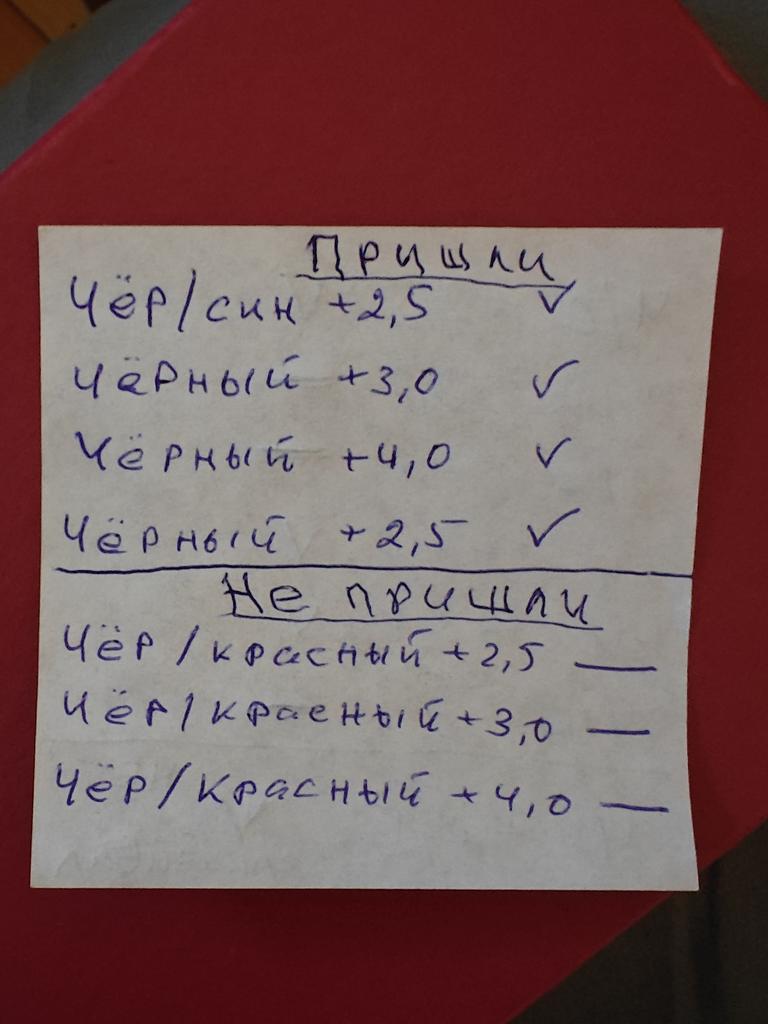 Пришли
Чёр/син +2,5 ✓
Чёрный +3,0 ✓
Чёрный +4,0 ✓
Чёрный +2,5 ✓
Не пришли
Чёр/красный +2,5 —
Чёр/красный +3,0 —
Чёр/красный +4,0 —